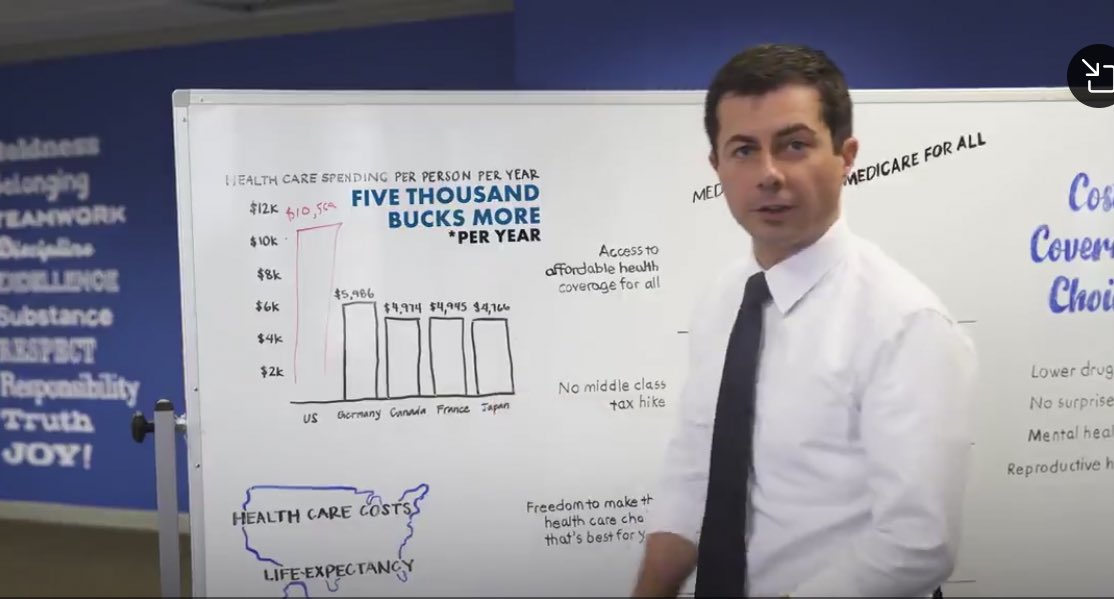 Belonging
TEAMWORK
Discipline
EXCELLENCE
Substance
RESPECT
Responsibility
Truth
JOY!
HEALTH CARE SPENDING PER PERSON PER YEAR
FIVE THOUSAND
BUCKS MORE
*PER YEAR
$12K
$10,569
$10K
$8K
$6K
$4K
$2K
$5,986
$4,974
$4,945
$4,766
US
Germany
Canada
France
Japan
HEALTH CARE COSTS
LIFE EXPECTANCY
Access to
affordable health
coverage for all
No middle class
tax hike
Freedom to make
health care
that's best for
MEDICARE FOR ALL
Lower drug
No surprise
Mental
Reproductive